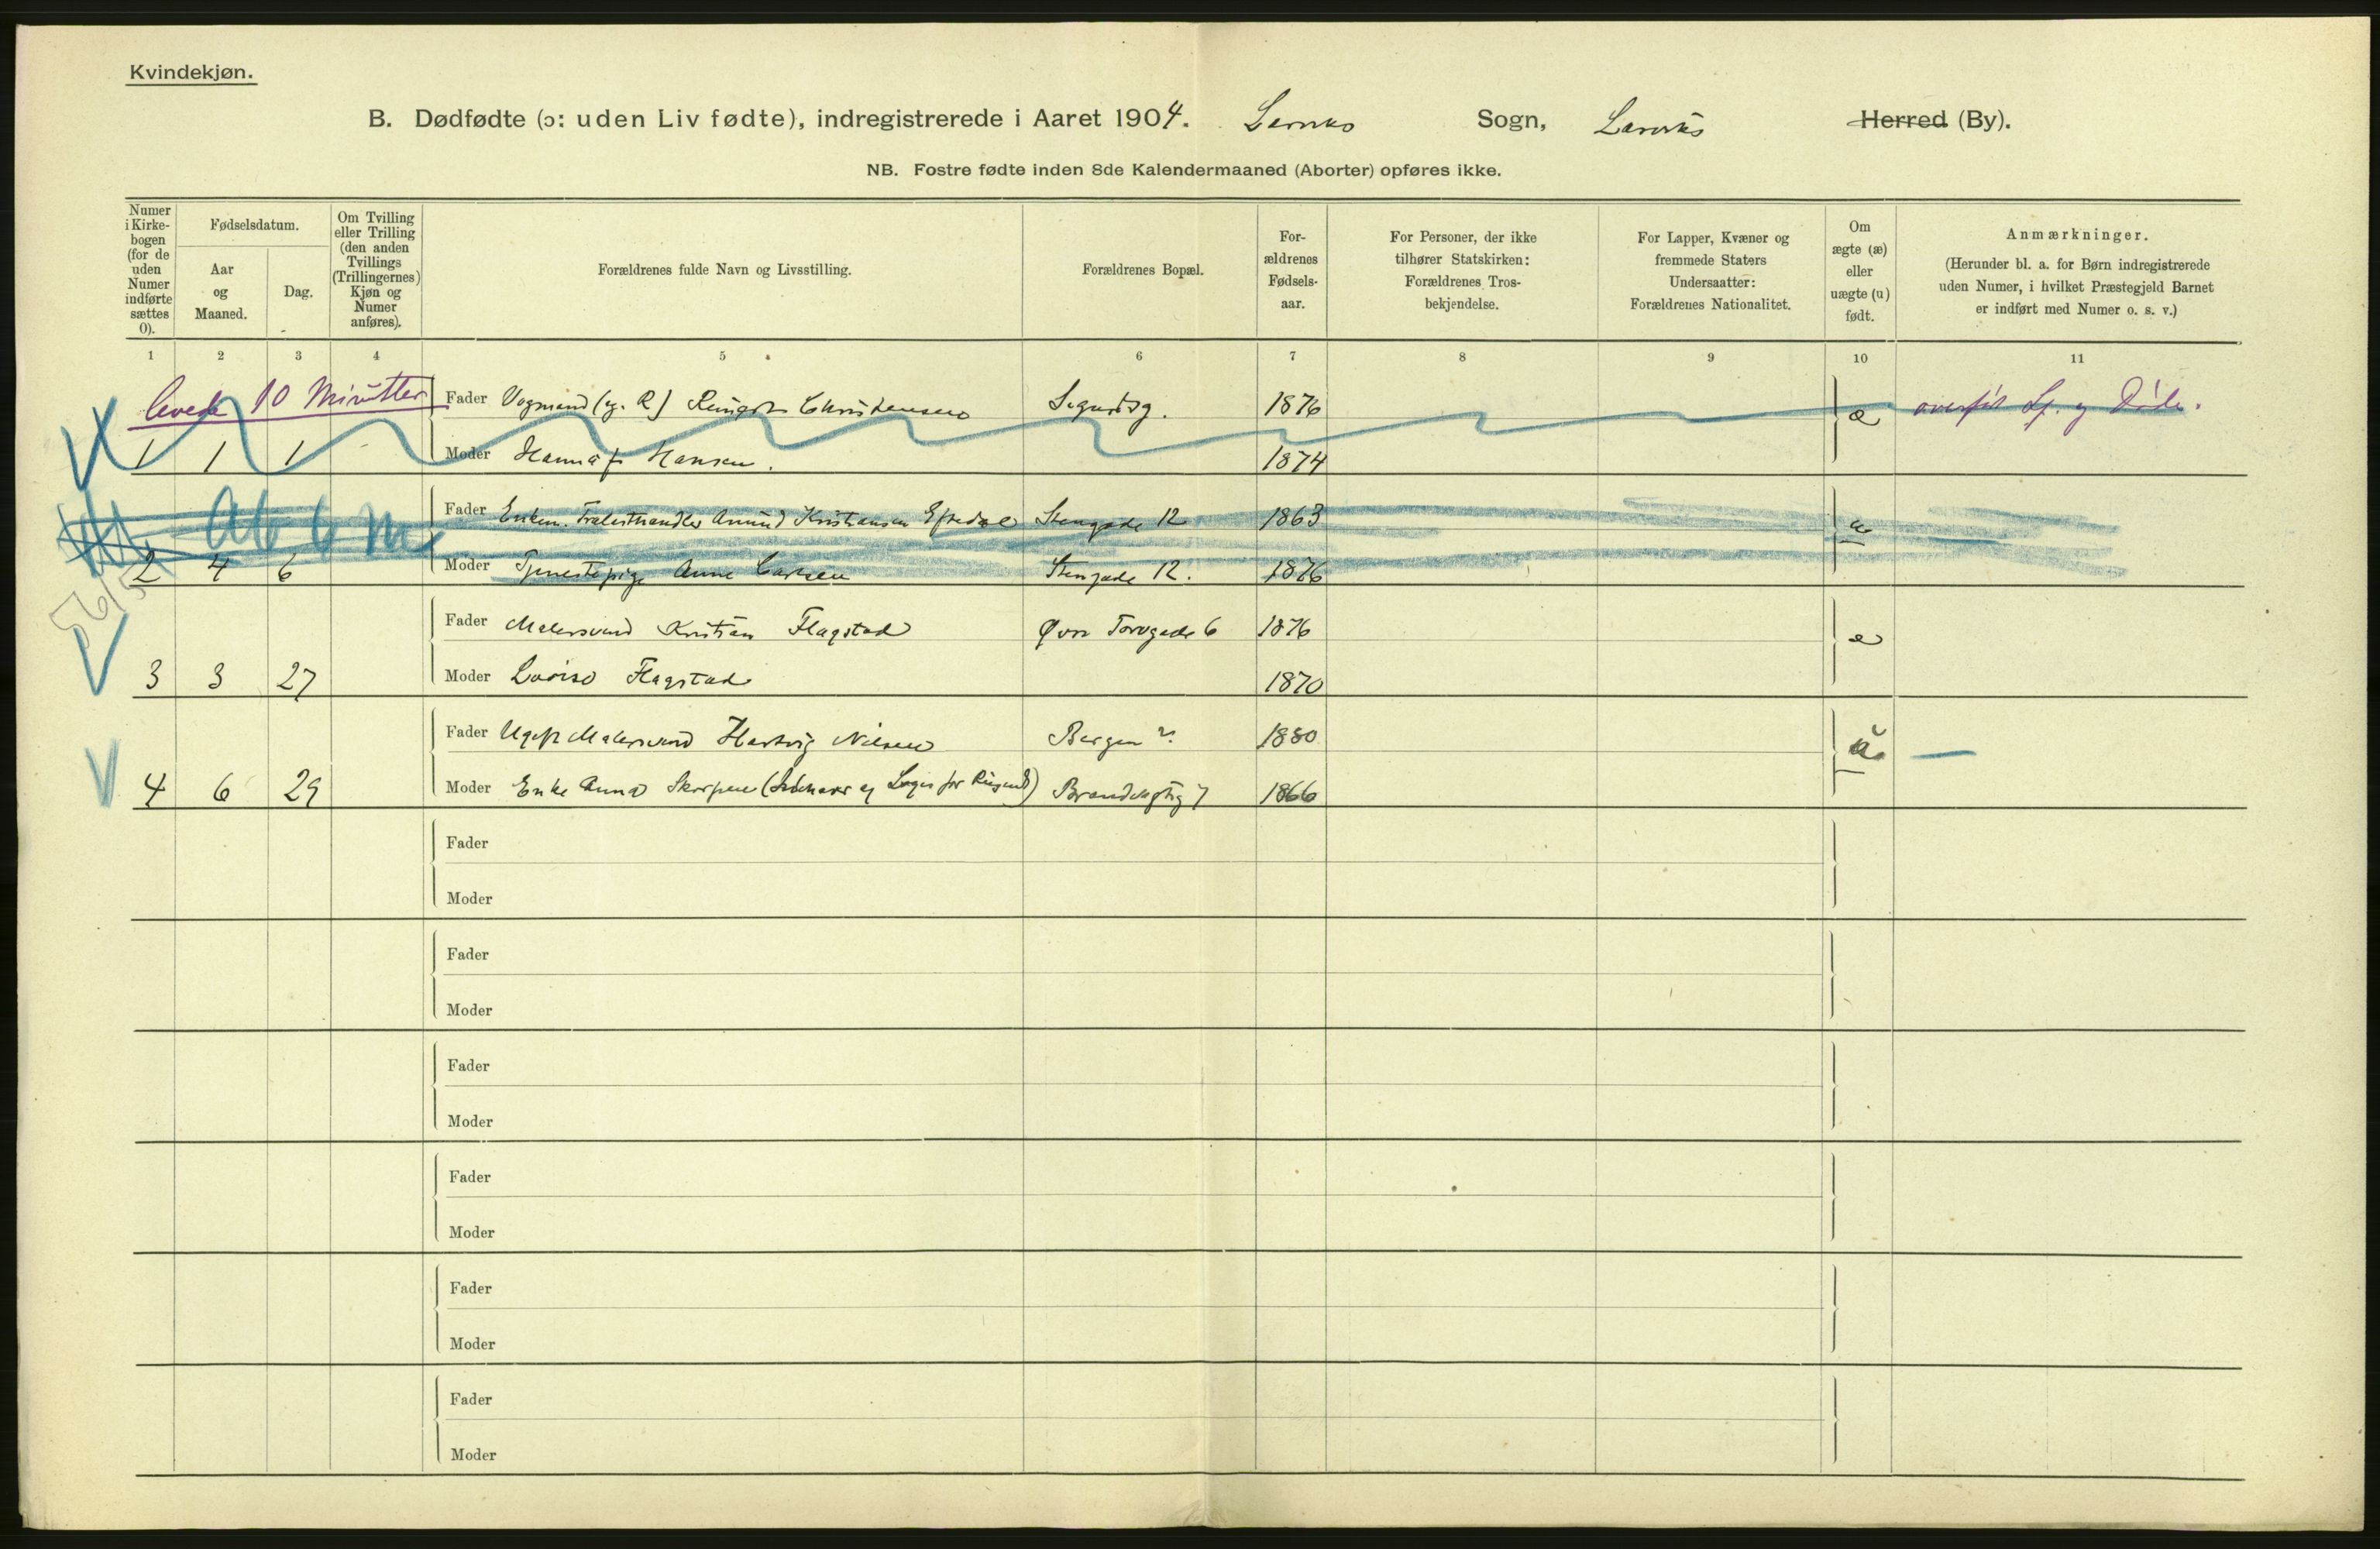 Kvindekjøn.
B. Dødfødte (ɔ: uden Liv fødte), indregistrerede i Aaret 1904. Larviks Sogn, Larviks Herred (By).
NB. Fostre fødte inden 8de Kalendermaaned (Aborter) opføres ikke.
Numer i Kirke-bogen (for de uden Numer indførte sættes 0).
Fødselsdatum.
Aar og Maaned.
Dag.
Om Tvilling eller Trilling (den anden Tvillings (Trillingernes) Kjøn og Numer anføres).
Forældrenes fulde Navn og Livsstilling.
Forældrenes Bopæl.
For-ældrenes Fødsels-aar.
For Personer, der ikke tilhører Statskirken: Forældrenes Tros-bekjendelse.
For Lapper, Kvæner og fremmede Staters Undersaatter: Forældrenes Nationalitet.
Om ægte (æ) eller uægte (u) født.
Anmærkninger.
(Herunder bl. a. for Børn indregistrerede uden Numer, i hvilket Præstegjeld Barnet er indført med Numer o. s. v.)
1 2 3 4 5 6 7 8 9 10 11
levede 10 Minutter
Fader Vognmand Christensen Sigurdsg. 1876 æ
1 1 1 Moder Hanna f. Hansen. 1874
Ab 6 M
Fader Enkem. Amund Kristiansen Stengade 12 1863 u
2 4 6 Moder Tjenestepige Anne Carlsen Stengade 12. 1876
Fader Malersvend Kristian Flagstad Øvre Torvgade 6 1876 æ
3 3 27 Moder Lovise Flagstad 1870
Fader Ugift Malersvend Hartvig Nilsen Bergen ?. 1880 u
4 6 29 Moder Enke Anna Logis for 7 1866
Fader
Moder
Fader
Moder
Fader
Moder
Fader
Moder
Fader
Moder
Fader
Moder